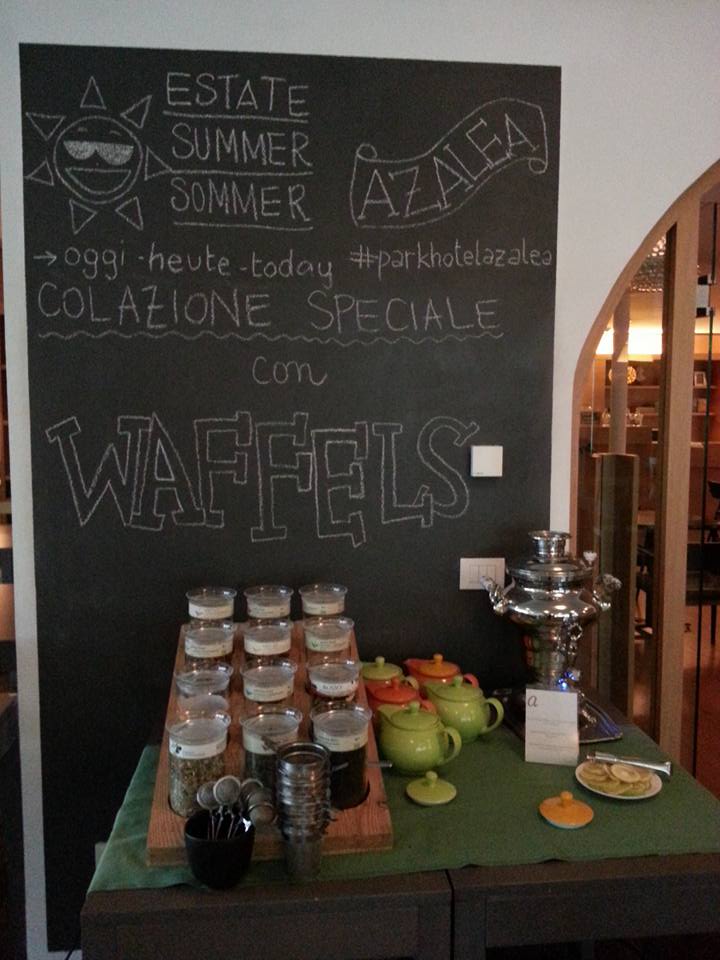 ESTATE
SUMMER
SOMMER
AZALEA
→ oggi - heute - today
#parkhotelazalea
COLAZIONE SPECIALE
con
WAFFELS
a